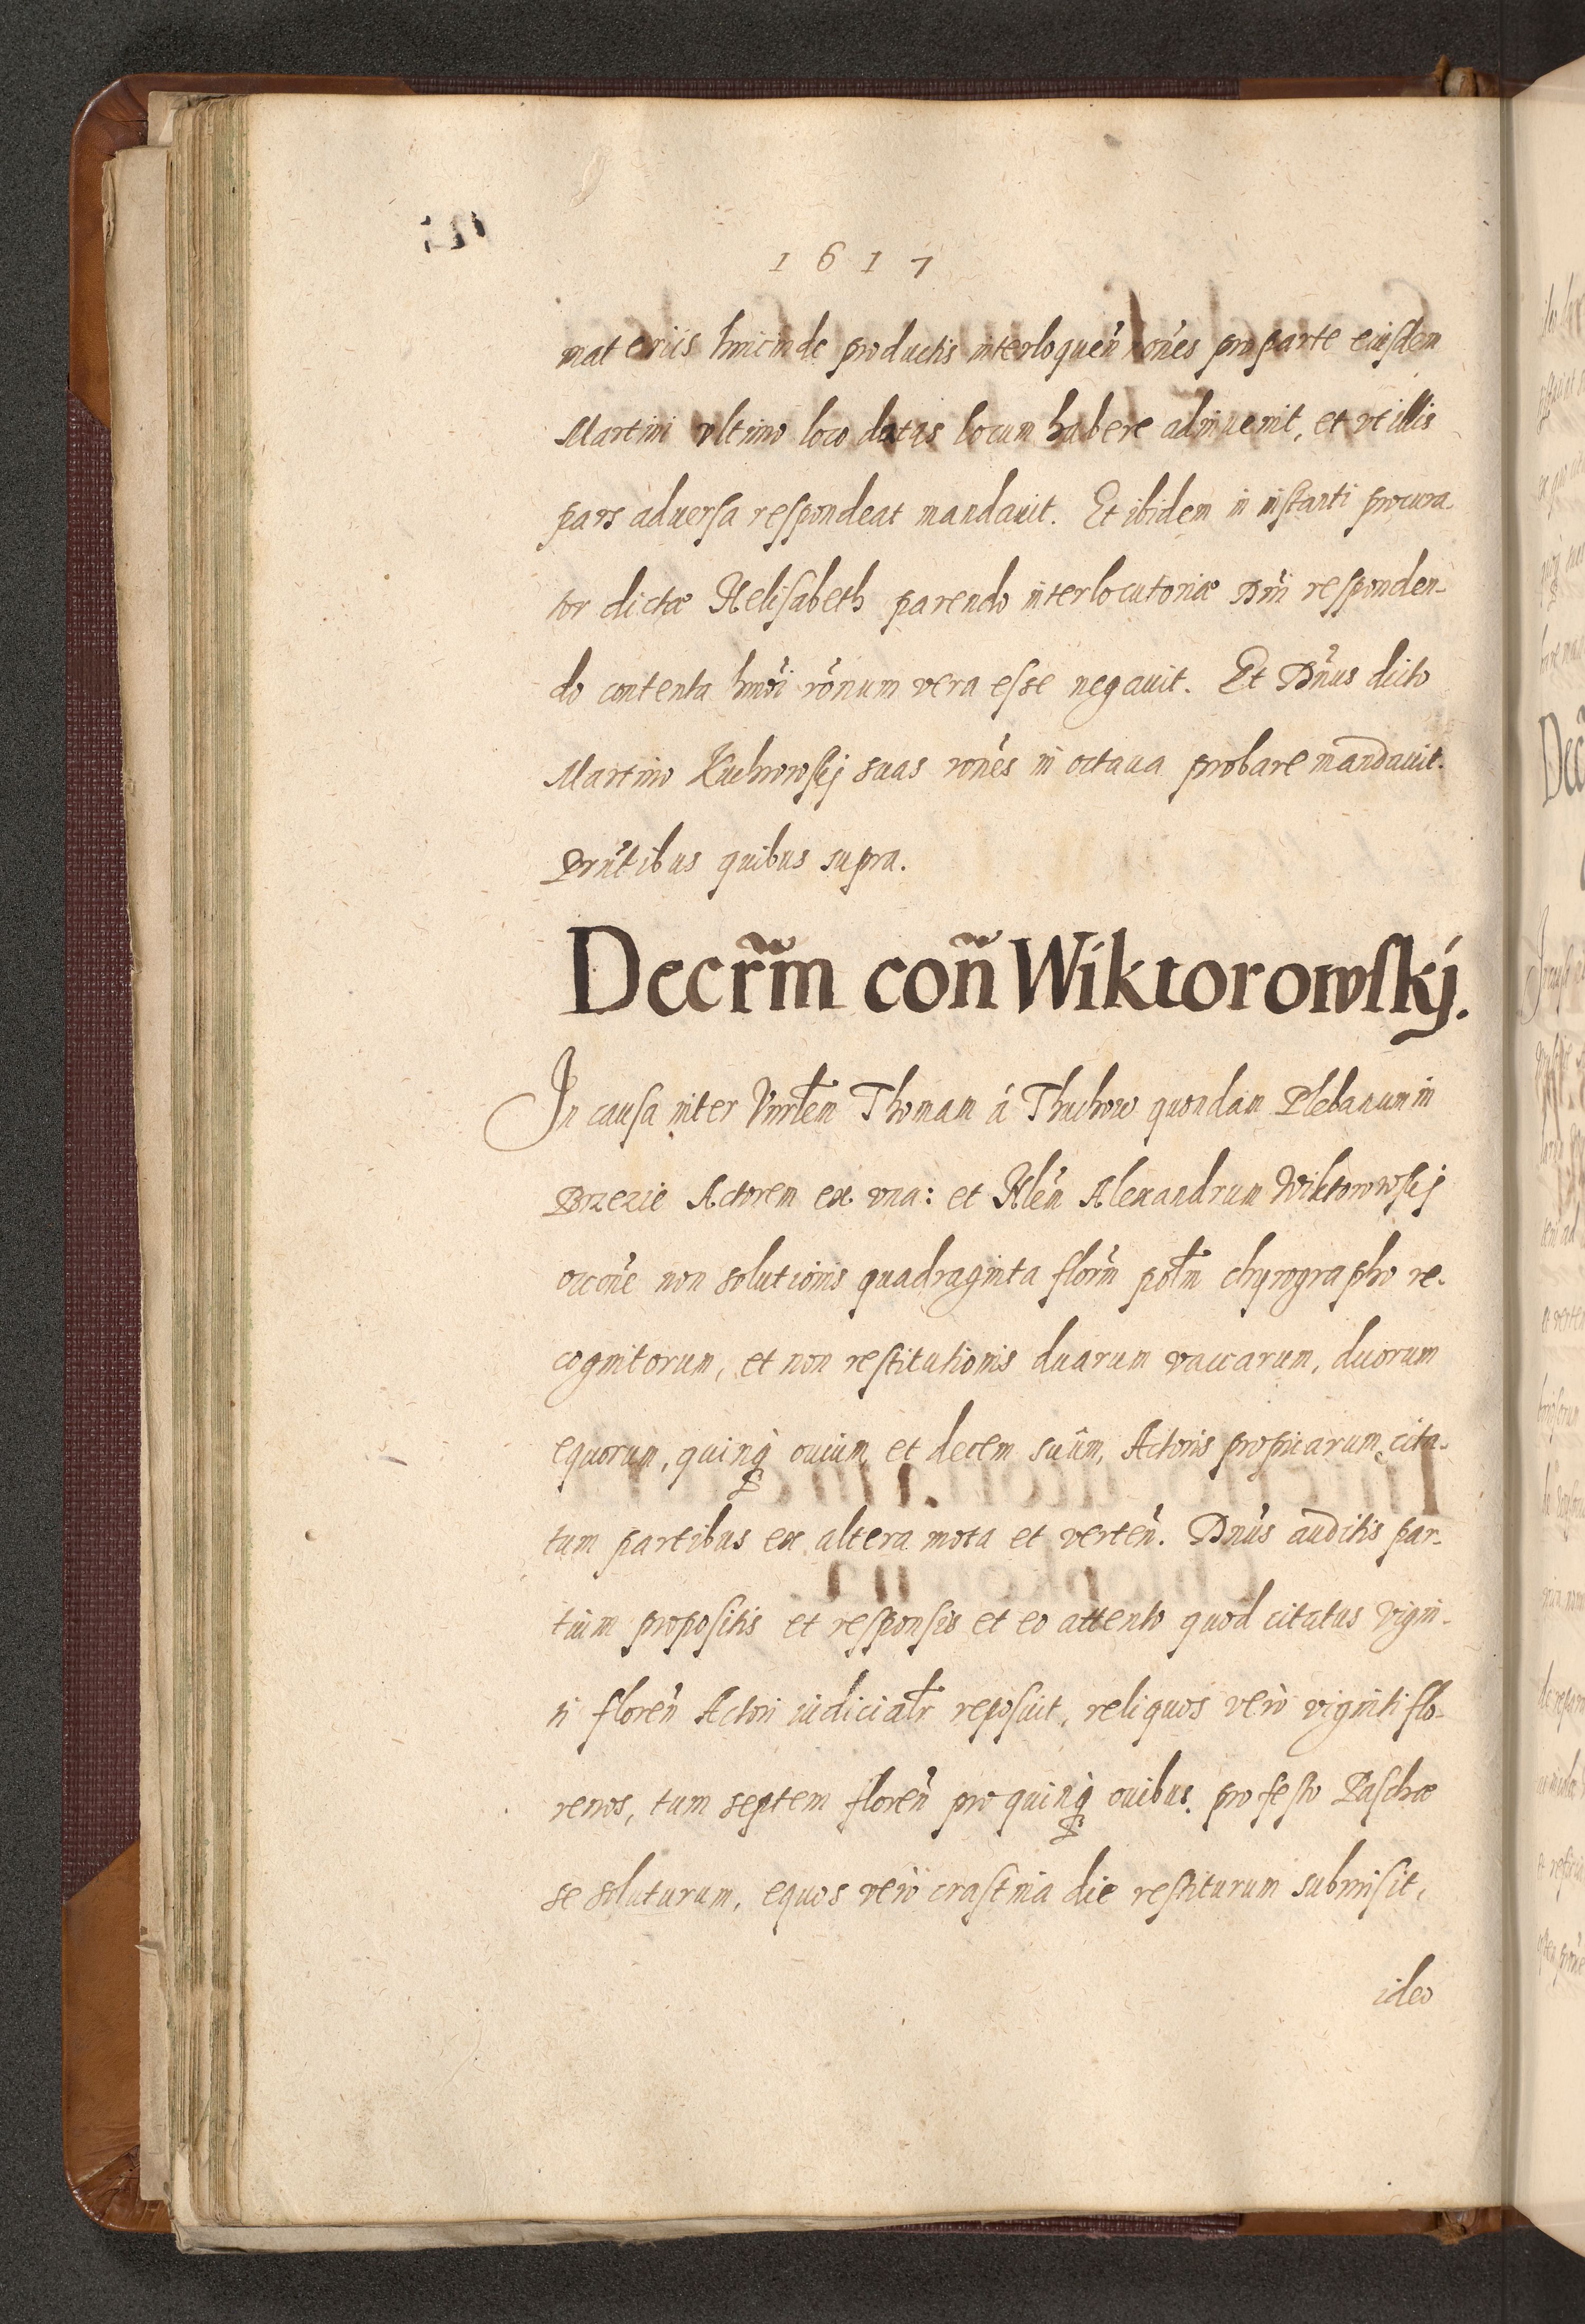 1617
materiis hincinde productis interloquen̄ rōnes pro parte eiusdem
Martini vltimo loco datas locum habere adinuenit, et vt illis
pars aduersa respondeat mandauit. Et ibidem in instanti procura-
tor dictæ Helisabeth parendo interlocutoriæ Dnī responden-
do contenta hmōi rōnum vera esse negauit. Et Dnūs dicto
Martino Kuchrowskj suas rōnes in octaua probare mandauit.
Prn̄tibus quibus supra.
Decrm̄ con̄ Wiktorowskj.
In causa inter Vnrl̄em Thomam á Thuchow quondam Plebanum in
Brzezie Actorem ex vna: et Nl̄em Alexandrum Wiktorowskj
occōne non solutionis quadraginta florn̄ pol̄m chyrographo re-
cognitorum, et non restitutionis duarum vaccarum, duorum
equorum, quinq̨ ouium et decem suum, Actoris propriarum cita-
tum partibus ex altera mota et verten̄. Dnūs auditis par-
tium propositis et responsis et eo attento quod citatus vigin-
ti floren̄ Actori iudicial̄r reposuit, reliquos verò viginti flo-
renos, tum septem floren̄ pro quinq̨ ouibus pro festo Paschæ
se soluturum, equos verò crastina die restiturum submisit,
ideo